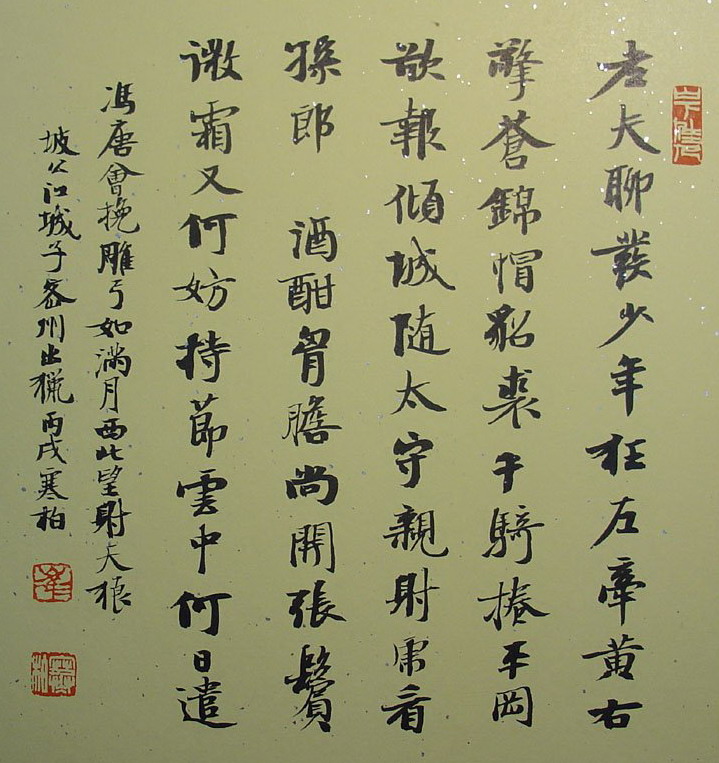 老夫聊發少年狂左牽黃右
擎蒼錦帽貂裘千騎捲平岡
欲報傾城随太守親射虎看
孫郎 酒酣胷膽尚開張鬢
微霜又何妨持節雲中何日遣
馮唐會挽雕弓如滿月西北望射天狼
坡公江城子密州出獵丙戌寒柏